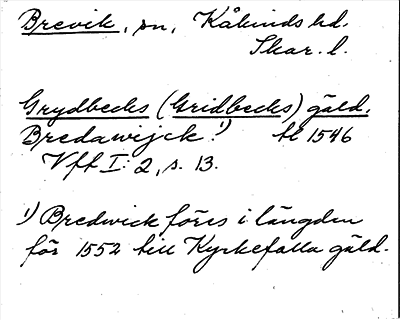 Brevik, sn, Kåkinds hd.
Skar. l.
Grydbecks (Gridbecks) gäld.
Bredawijck 1) tl 1546
Vff I: 2, s. 13.
1) Bredwick föres i längden
för 1552 till Kyrkefalla gäld.